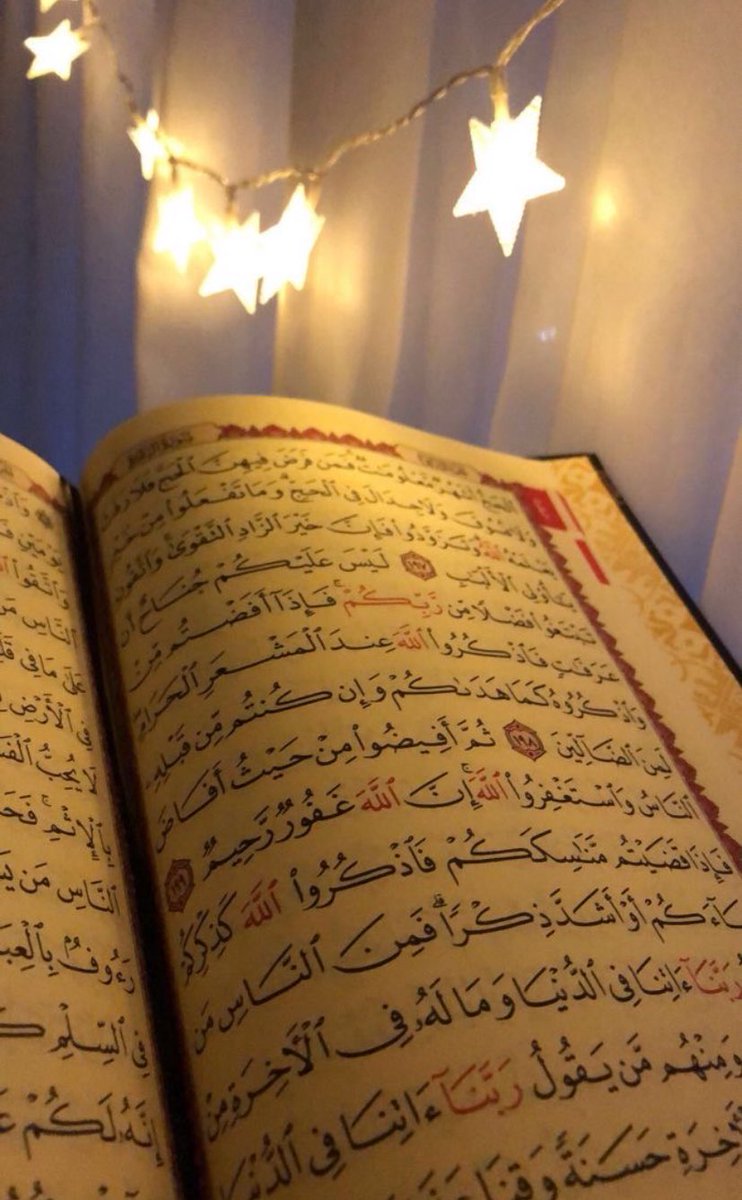 ٱلْحَجُّ أَشْهُرٌ مَّعْلُومَـٰتٌ فَمَن فَرَضَ فِيهِنَّ ٱلْحَجَّ فَلَا رَفَثَ
وَلَا فُسُوقَ وَلَا جِدَالَ فِى ٱلْحَجِّ وَمَا تَفْعَلُوا۟ مِنْ خَيْرٍ
يَعْلَمْهُ ٱللَّهُ وَتَزَوَّدُوا۟ فَإِنَّ خَيْرَ ٱلزَّادِ ٱلتَّقْوَىٰ وَٱتَّقُونِ
يَـٰٓأُو۟لِى ٱلْأَلْبَـٰبِ ١٩٧ لَيْسَ عَلَيْكُمْ جُنَاحٌ أَن
تَبْتَغُوا۟ فَضْلًا مِّن رَّبِّكُمْ ۚ فَإِذَآ أَفَضْتُم مِّنْ
عَرَفَـٰتٍ فَٱذْكُرُوا۟ ٱللَّهَ عِندَ ٱلْمَشْعَرِ ٱلْحَرَامِ
وَٱذْكُرُوهُ كَمَا هَدَىٰكُمْ وَإِن كُنتُم مِّن قَبْلِهِۦ
لَمِنَ ٱلضَّآلِّينَ ١٩٨ ثُمَّ أَفِيضُوا۟ مِنْ حَيْثُ أَفَاضَ
ٱلنَّاسُ وَٱسْتَغْفِرُوا۟ ٱللَّهَ ۚ إِنَّ ٱللَّهَ غَفُورٌ رَّحِيمٌ ١٩٩
فَإِذَا قَضَيْتُم مَّنَـٰسِكَكُمْ فَٱذْكُرُوا۟ ٱللَّهَ كَذِكْرِكُمْ
ءَابَآءَكُمْ أَوْ أَشَدَّ ذِكْرًا ۗ فَمِنَ ٱلنَّاسِ مَن
رَبَّنَآ ءَاتِنَا فِى ٱلدُّنْيَا وَمَا لَهُۥ فِى ٱلْـَٔاخِرَةِ مِنْ
وَمِنْهُم مَّن يَقُولُ رَبَّنَآ ءَاتِنَا فِى ٱلدُّنْيَا
حَسَنَةً وَقِنَا
يَوْمَيْنِ
وَٱتَّقُوا۟
ٱلنَّاسِ
مَا فِى
ٱلْأَرْضِ
يُحِبُّ
ٱلنَّاسِ مَن
رَءُوفٌۢ
فِى ٱلسِّلْمِ
إِنَّهُۥ لَكُمْ